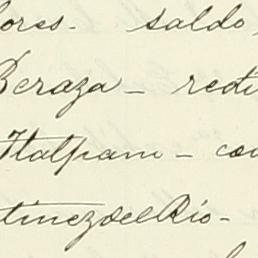 ores. saldo,
Beraza – redi
Ttalpam – con
tinez del Rio –